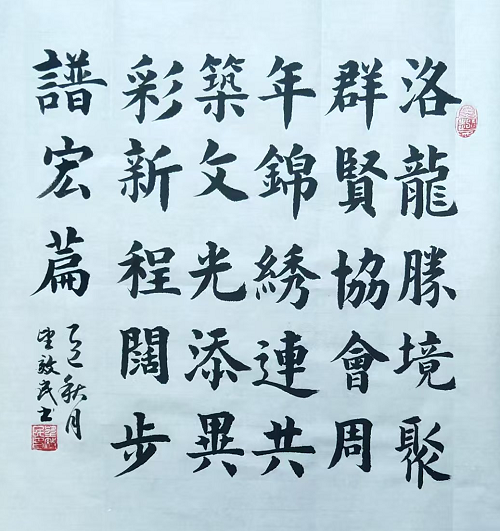 洛龍勝境聚
群賢協會周
年錦綉連共
築文光添異
彩新程闊步
譜宏篇
乙巳秋月
民书